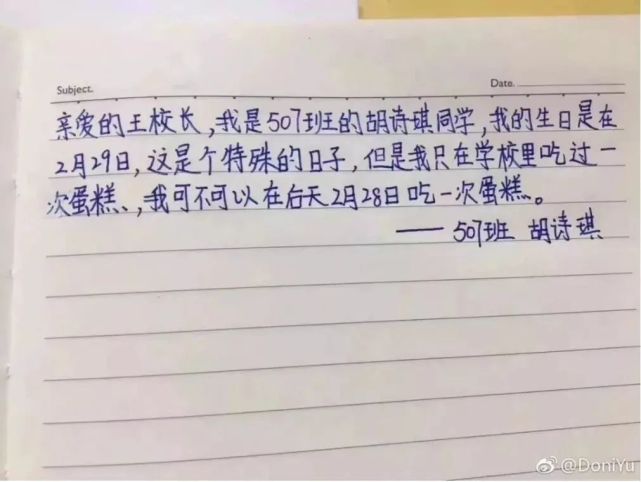 Subject.
Date.
亲爱的王校长,我是507班的胡诗琪同学,我的生日是在
2月29日,这是个特殊的日子,但是我只在学校里吃过一
次蛋糕、,我可不可以在后天2月28日吃一次蛋糕。
—— 507班 胡诗琪
@DoniYu